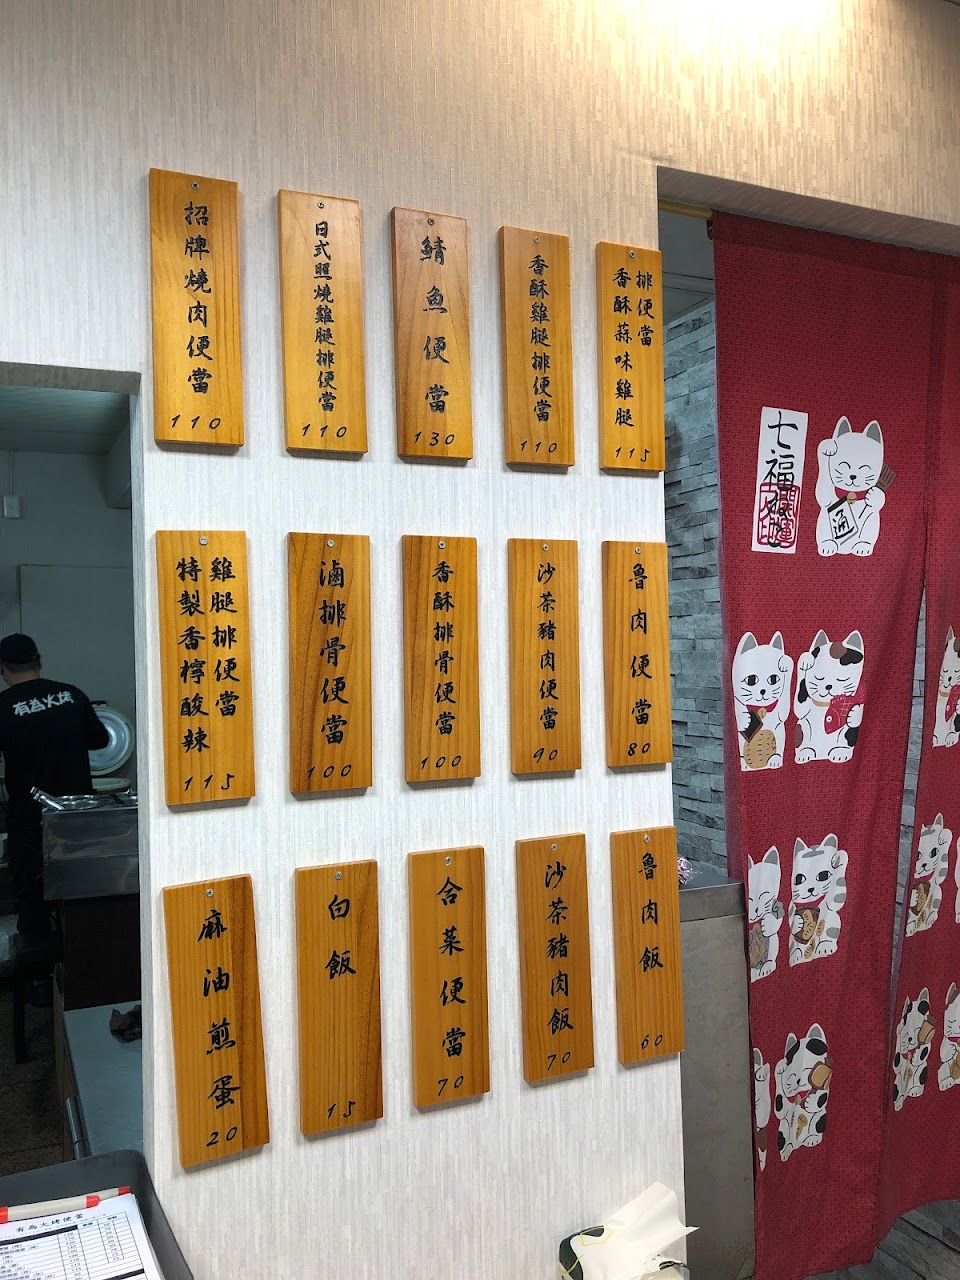 招牌燒肉便當
110
日式照燒雞腿排便當
110
鯖魚便當
130
香酥雞腿排便當
110
香酥蒜味雞腿
排便當
115
特製香檸酸辣
雞腿排便當
115
滷排骨便當
100
香酥排骨便當
100
沙茶豬肉便當
90
魯肉便當
80
麻油煎蛋
20
白飯
15
合菜便當
70
沙茶豬肉飯
70
魯肉飯
60
七福
開運
通
有為火烤
有為火烤便當